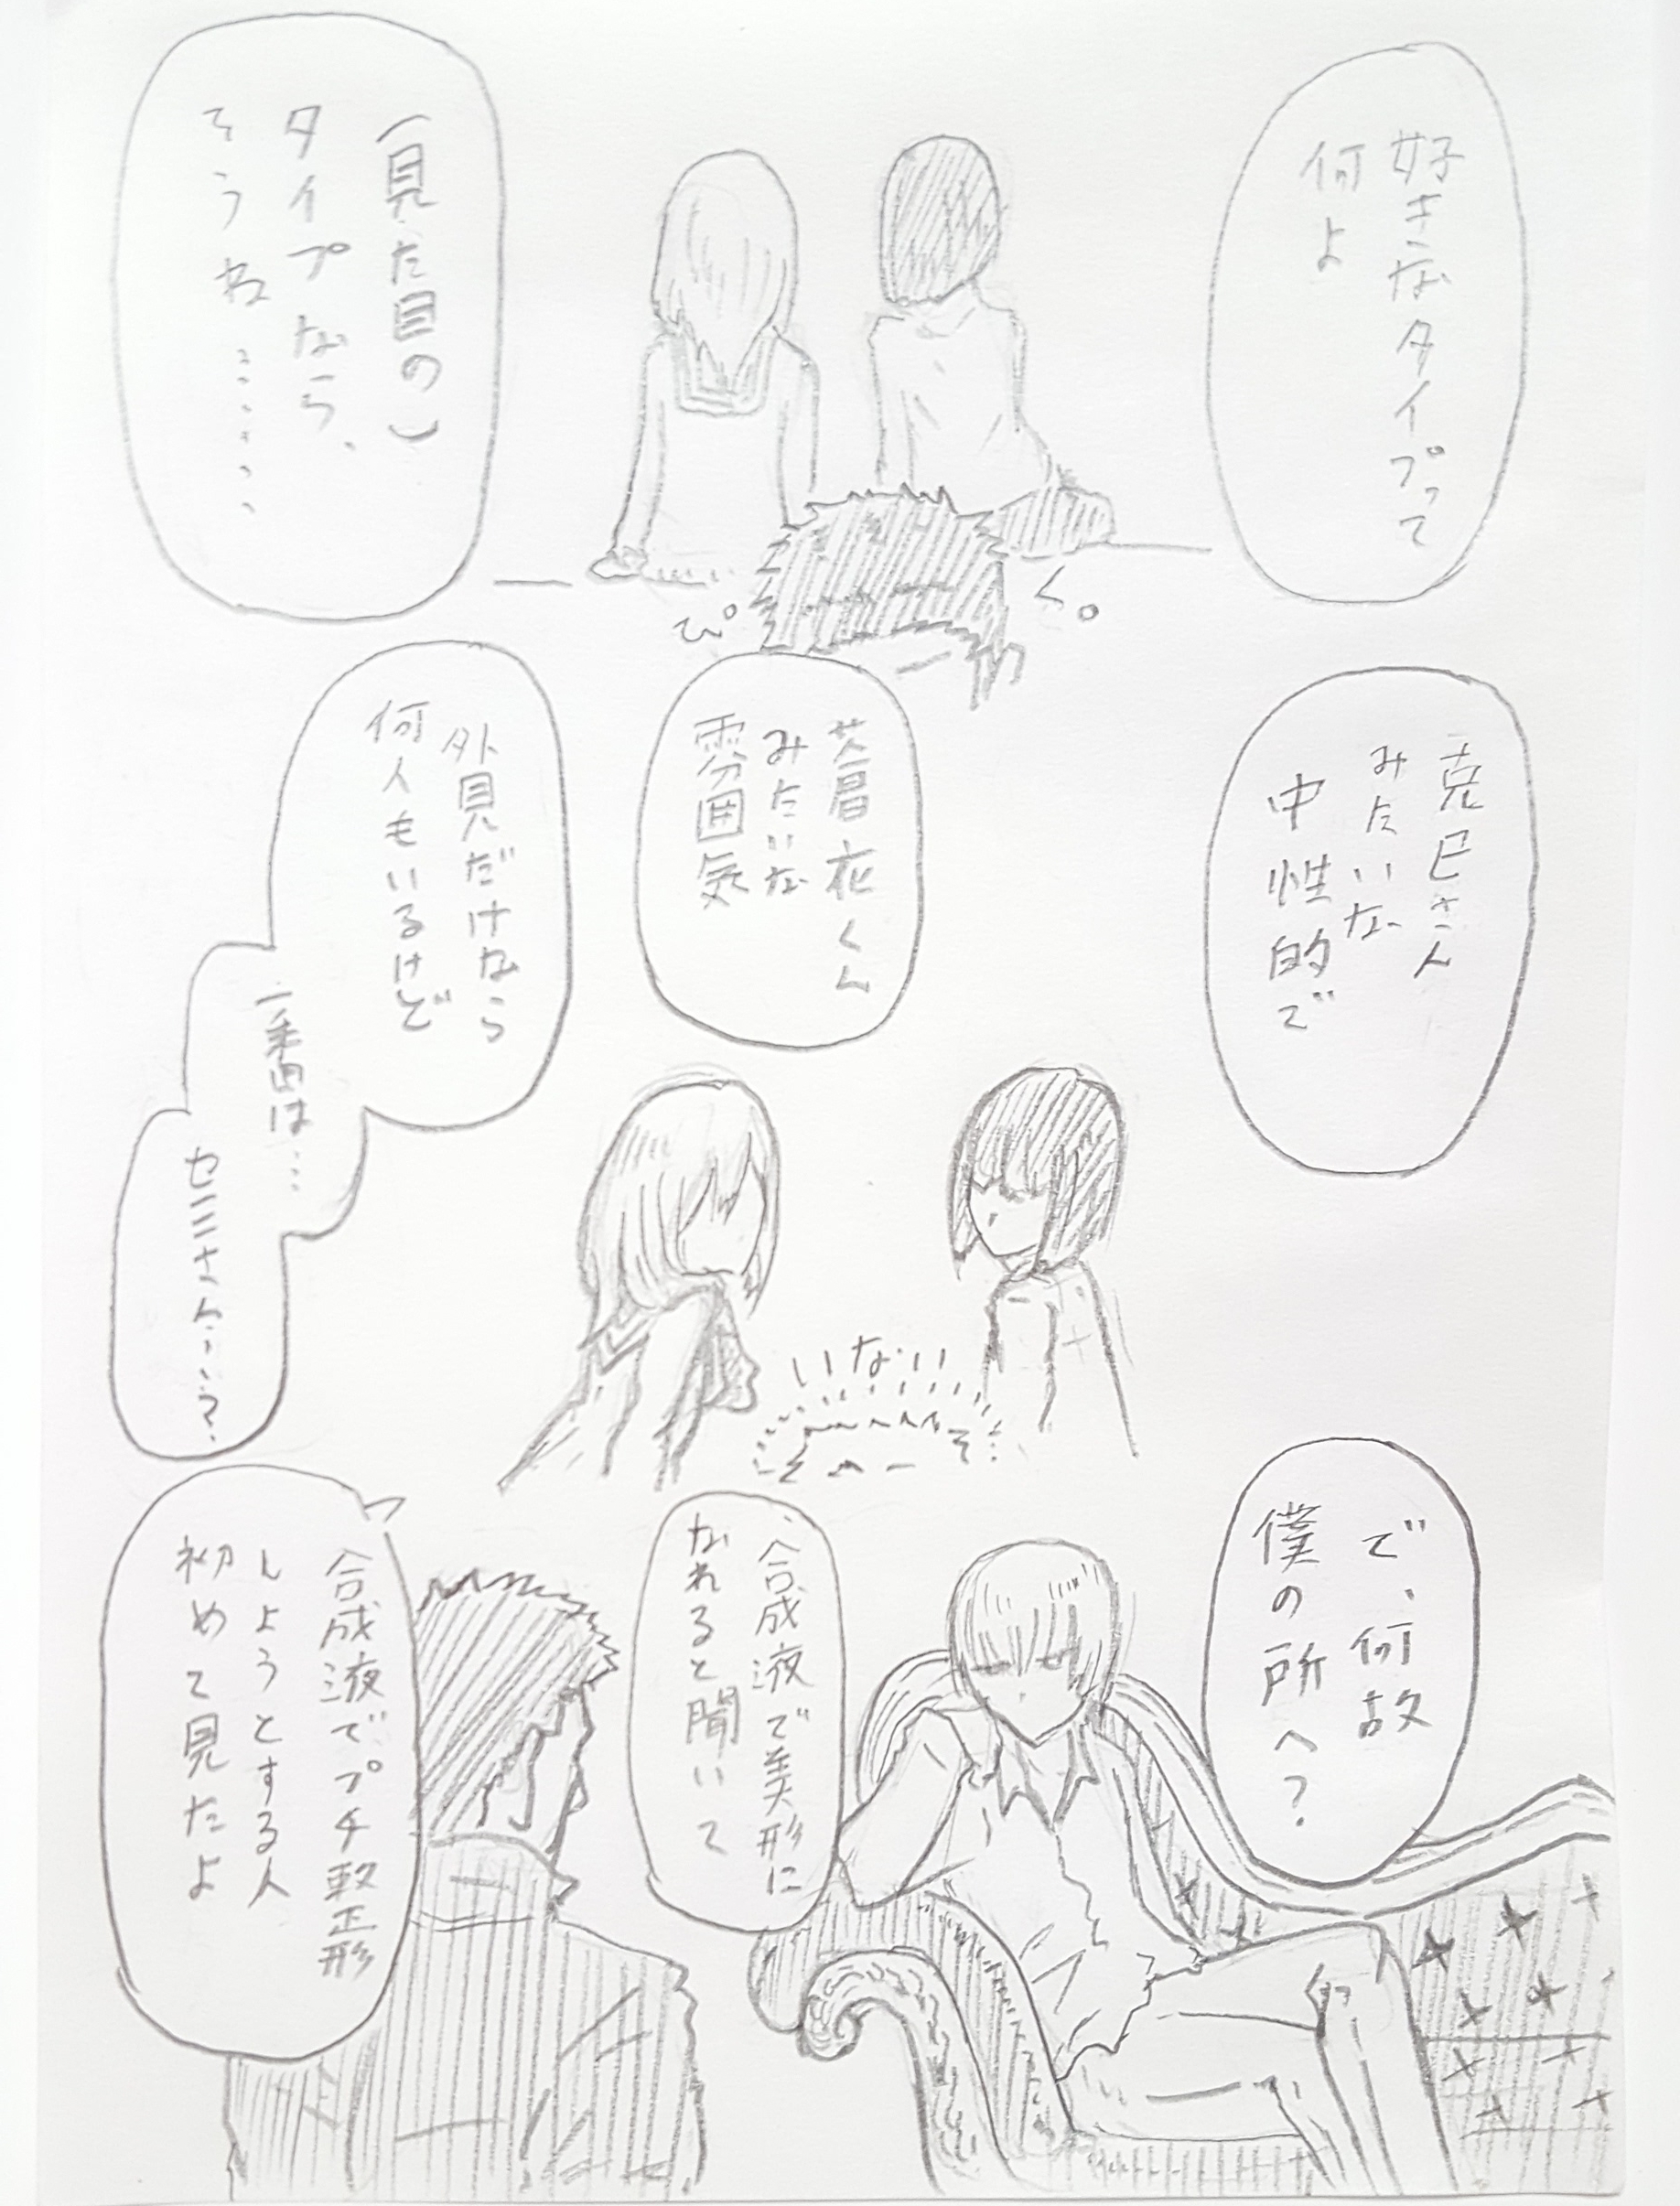 好きなタイプって
何よ
(見た目の)
タイプなら、
そうね……
ぴ
く。
克巳さん
みたいな
中性的で
みたいな
雰囲気
外見だけなら
何人もいるけど
一番は…
セニさん…?
いない
で、何故
僕の所へ?
合成液で美形に
なれると聞いて
合成液でプチ整形
しようとする人
初めて見たよ